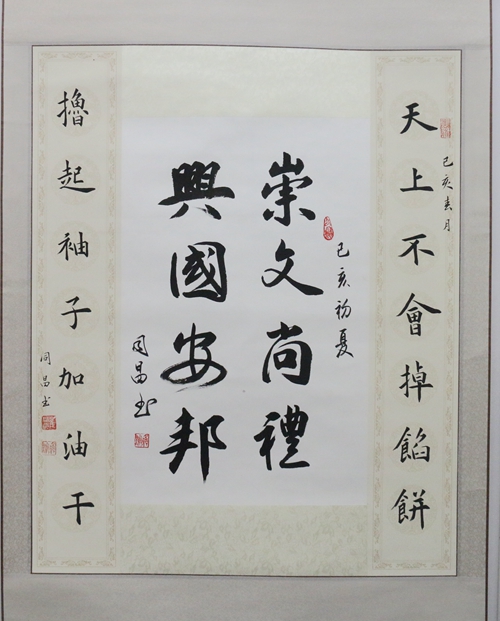 天上不會掉餡餅
己亥春月
己亥初夏
崇文尚禮
興國安邦
同昌书
擼起袖子加油干
同昌书